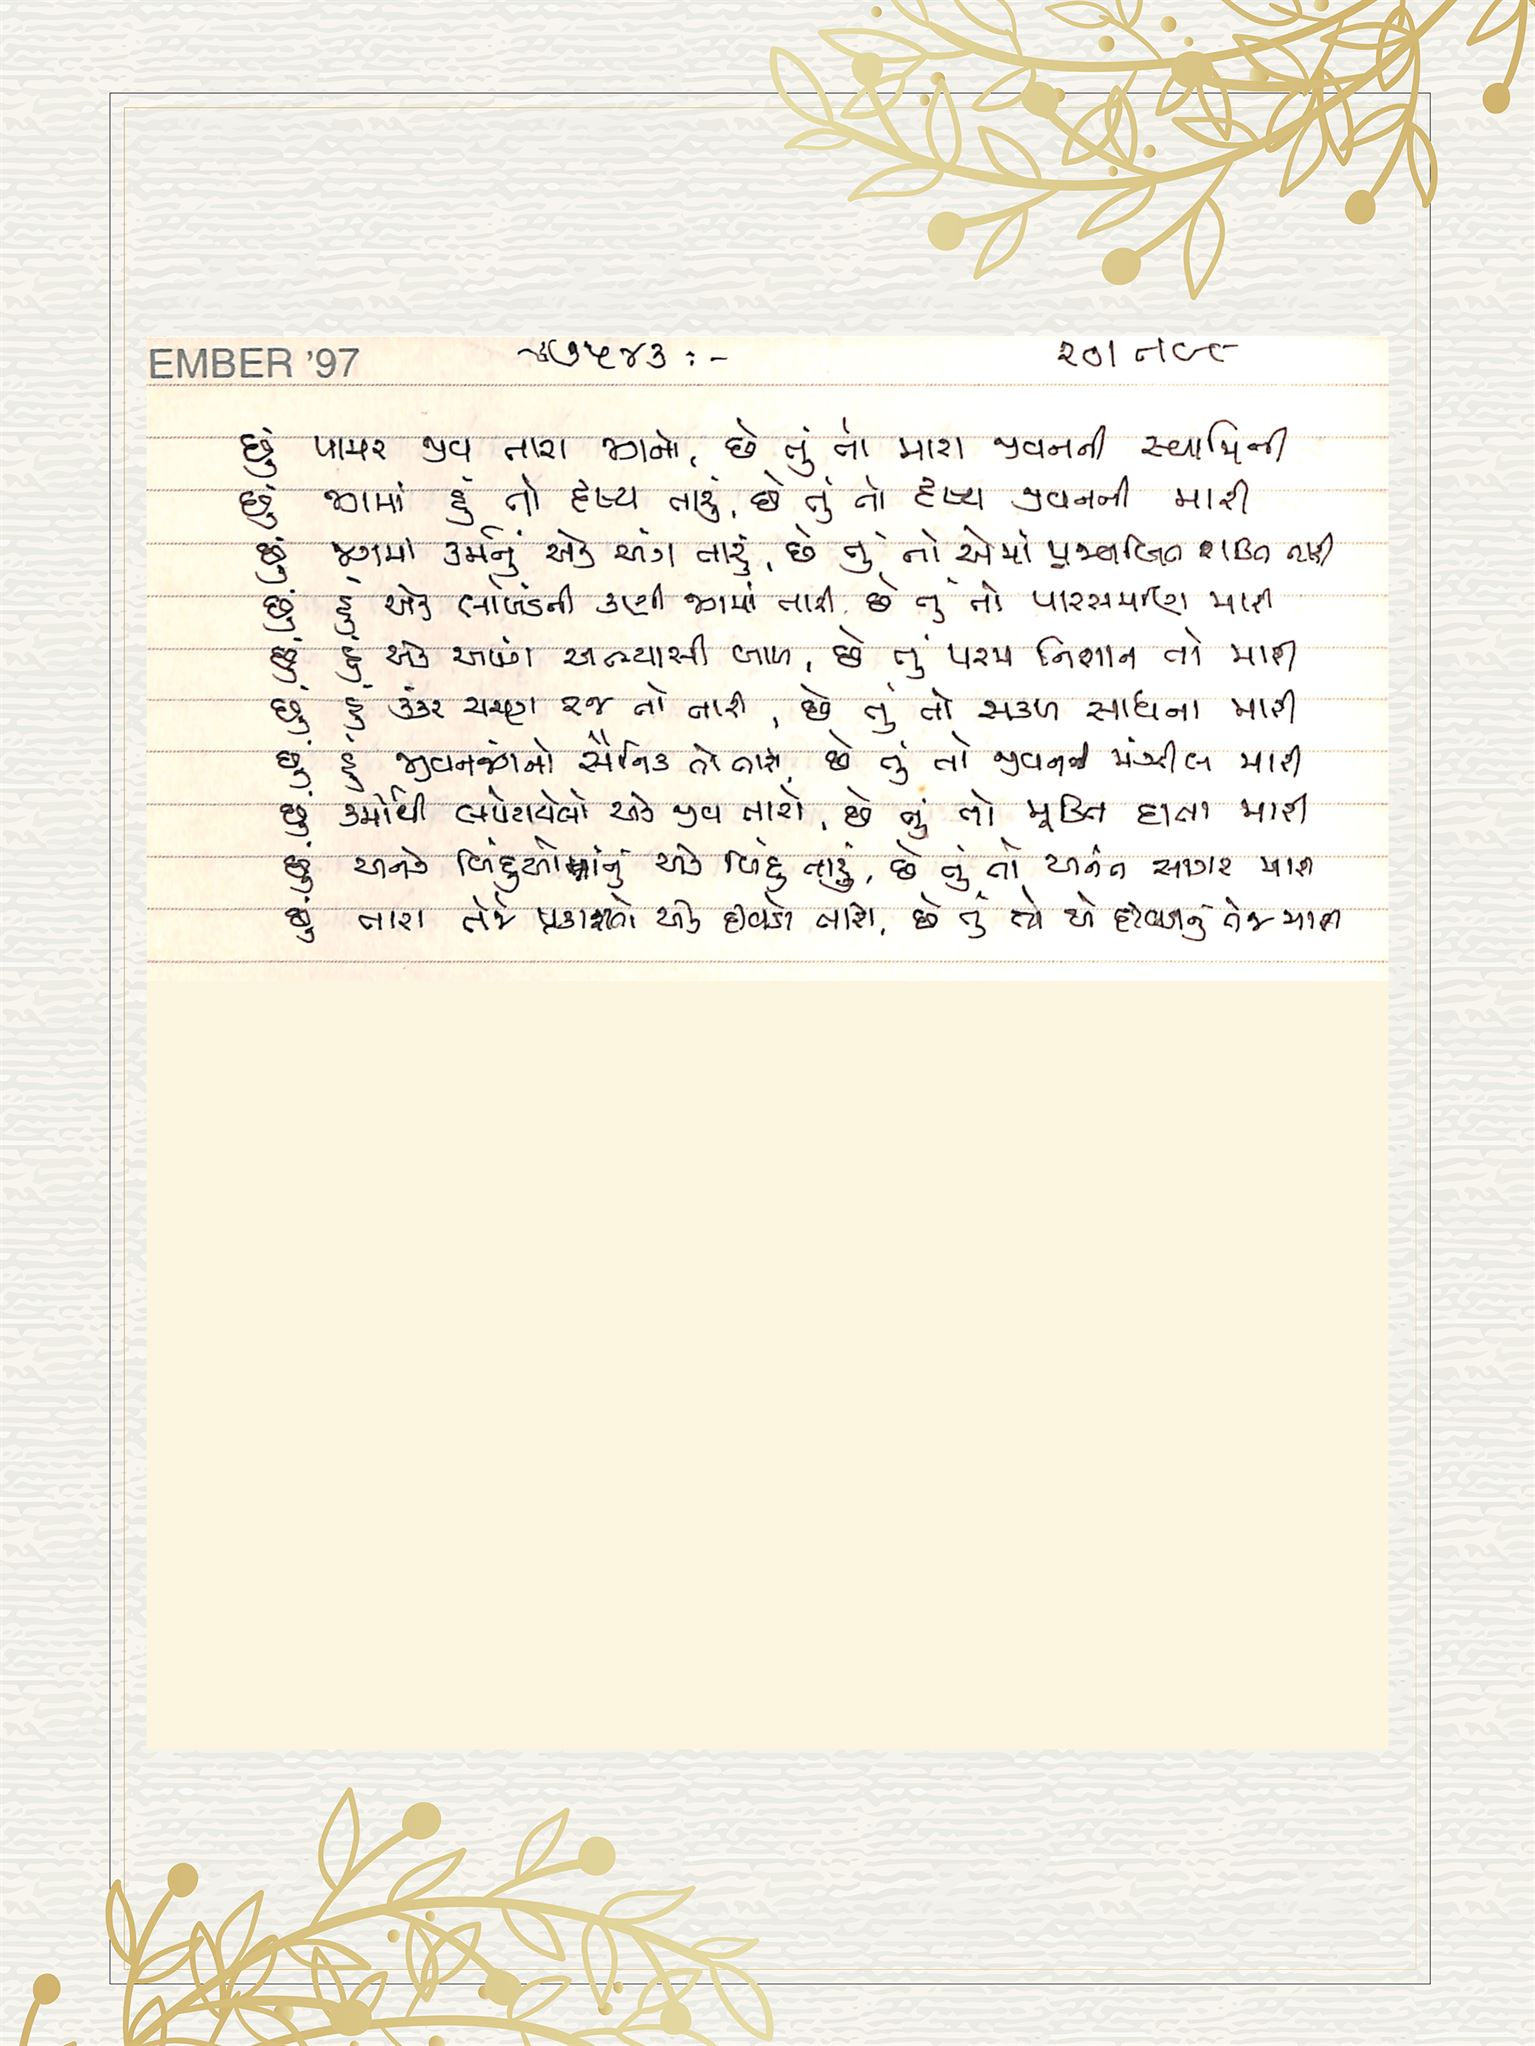 EMBER '97 ૭૫૪૩ :-
છું પામર જીવ તારા જગનો, છે તું તો મારા જીવનની સ્વામિની
છું જગમાં હું તો દૃષ્ય તારું, છે તું તો દૃષ્ય જીવનની મારી
છું જગમાં કર્મનું એક અંગ તારું, છે તું તો એમાં પ્રજ્વલિત શક્તિ
છું હું એક લોખંડની કણી જગમાં તારી, છે તું તો પારસમણિ મારી
છું હું એક અભ્યાસી બાળ, છે તું પરમ નિશાન તો મારી
છું હું કંકર ચરણ રજ તો તારી, છે તું તો સકળ સાધના મારી
છું હું જીવનજંગનો સૈનિક તો તારો, છે તું તો જીવનની મંઝીલ મારી
છું કર્મોથી લપેટાયેલો એક જીવ તારો, છે તું તો મૂક્તિ દાતા મારી
છું અનેક બિંદુઓમાંનું એક બિંદુ તારું, છે તું તો અનંત સાગર મારા
છું તારા તેજ પ્રકાશનો એક દીવડો તારો, છે તું તો એ દીવડાનું તેજ મારા